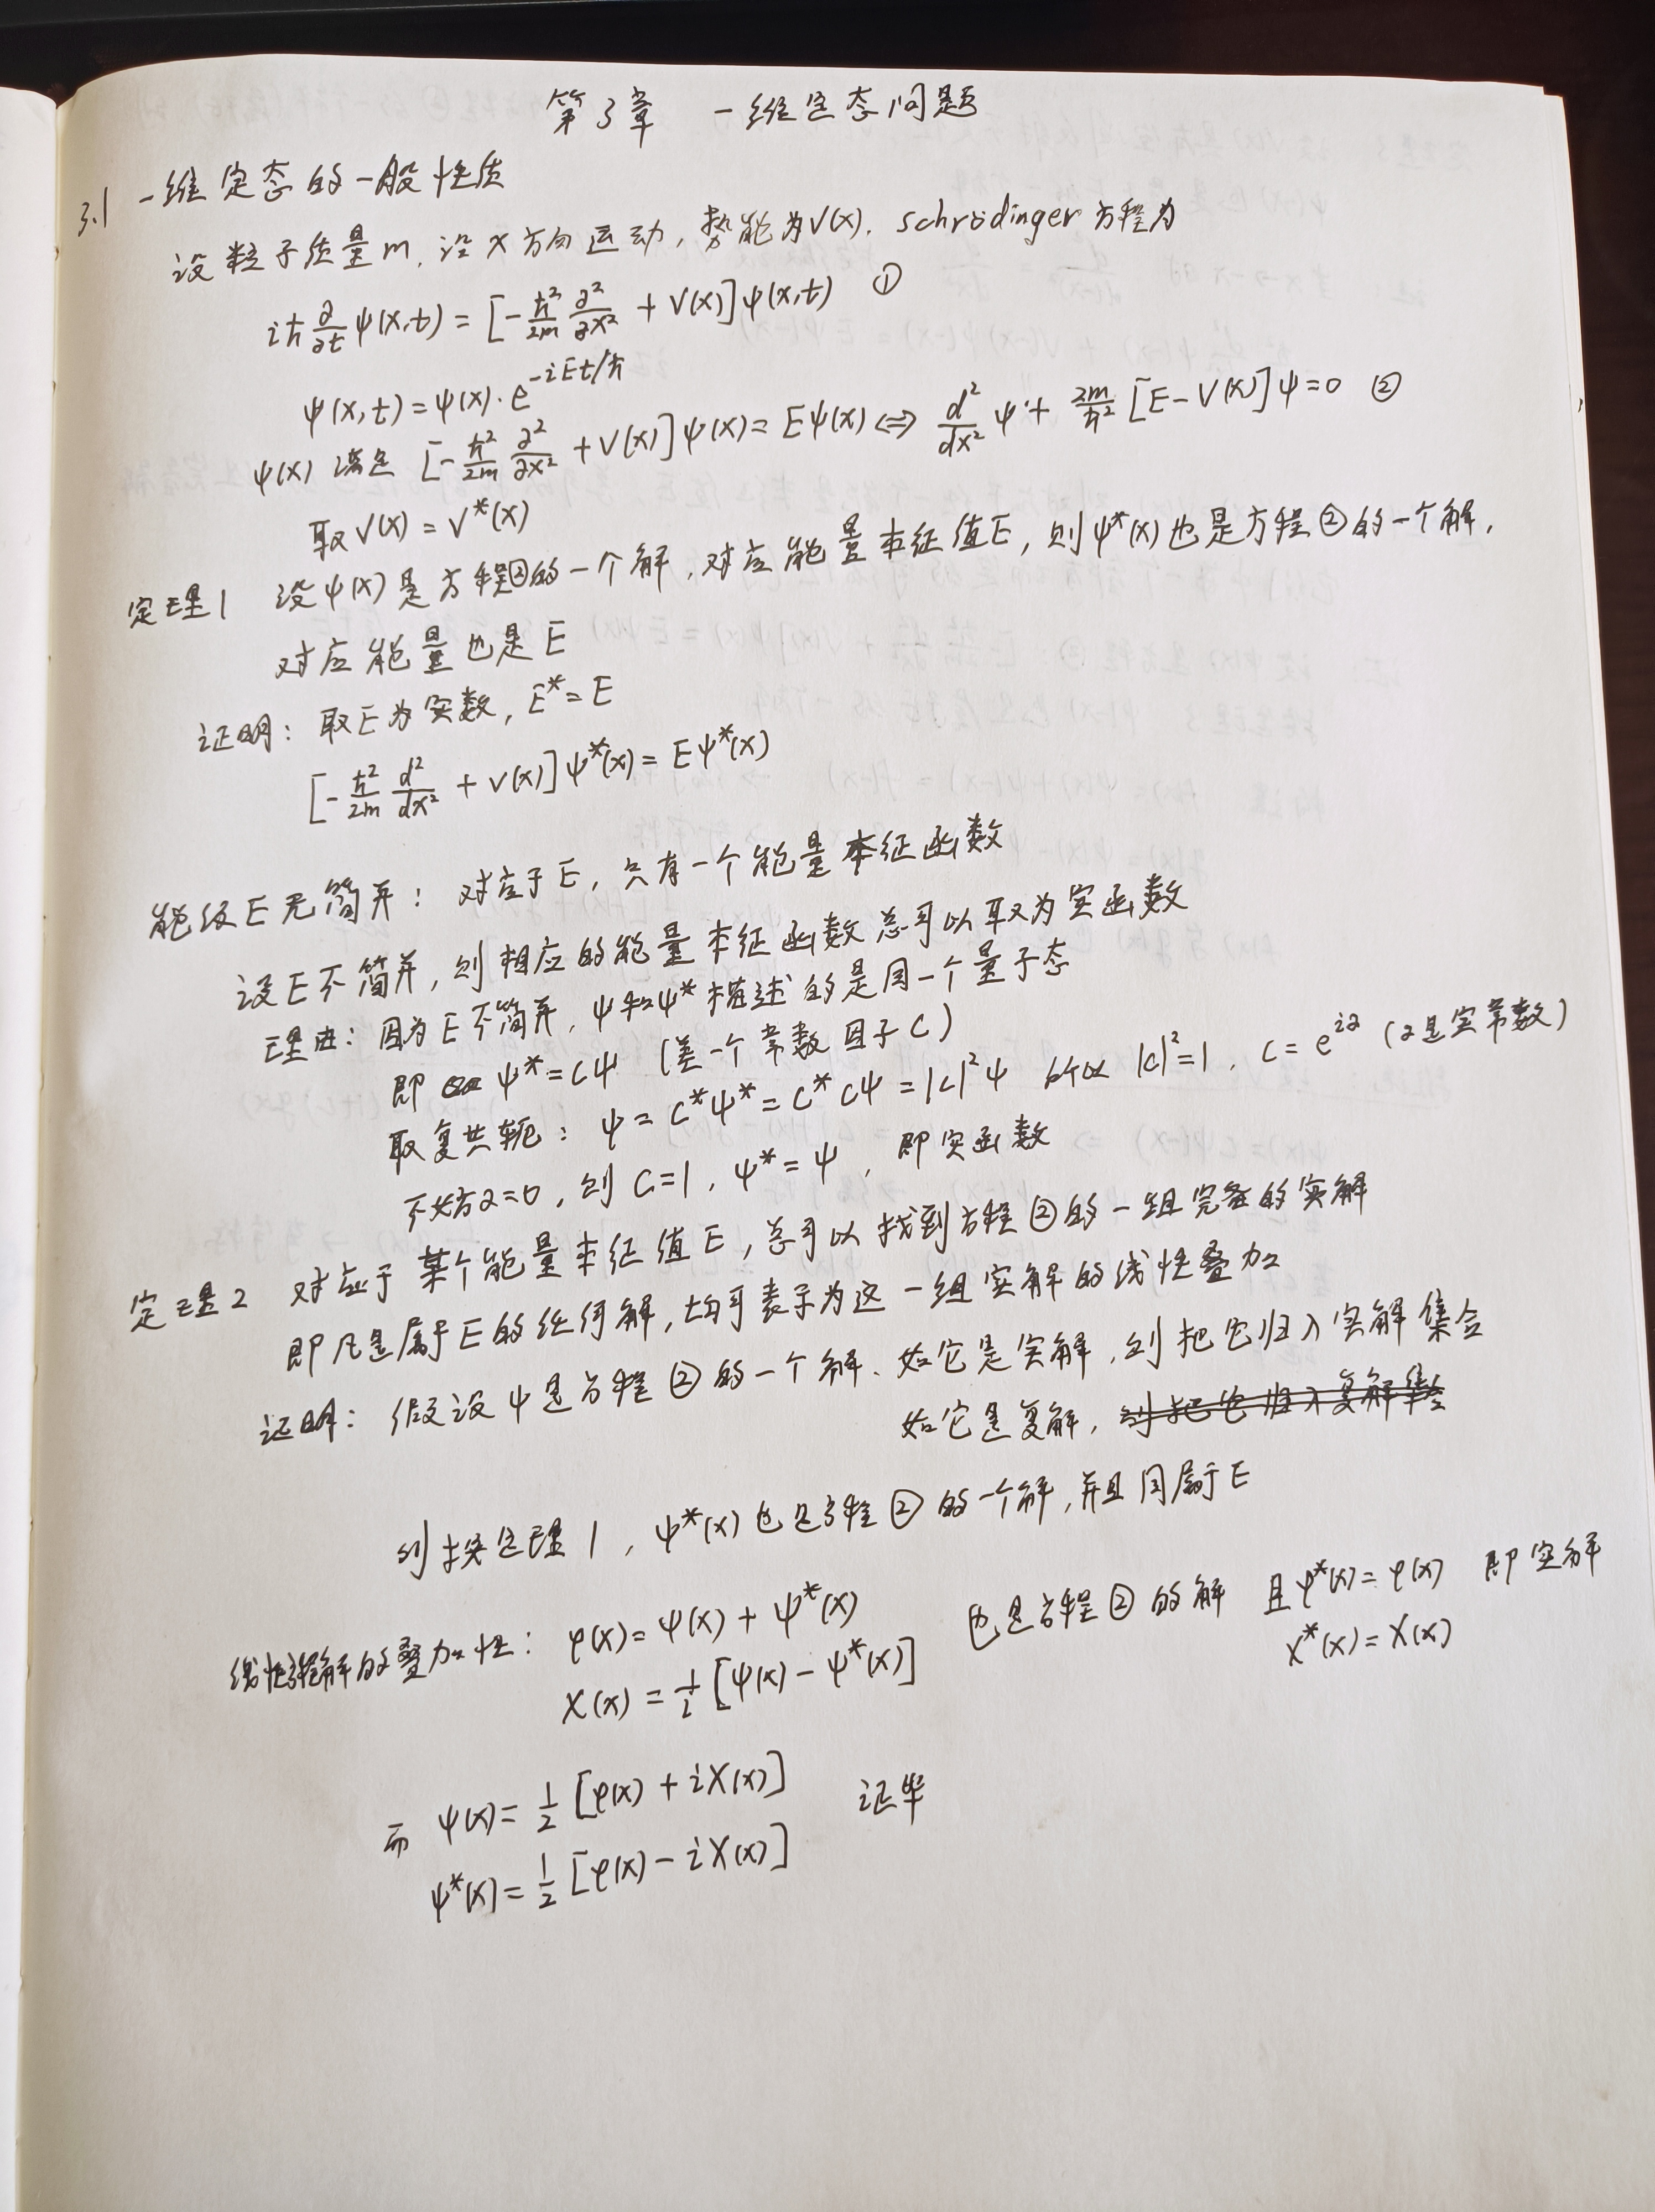 第3章 一维定态问题
3.1 一维定态的一般性质
设粒子质量m,沿x方向运动,势能为V(x). schrödinger方程为
iħ ∂/∂t ψ(x,t) = [-ħ²/2m ∂²/∂x² + V(x)]ψ(x,t) ①
ψ(x,t)=ψ(x)·e^{-iEt/ħ}
ψ(x) 满足 [-ħ²/2m ∂²/∂x² + V(x)]ψ(x)=Eψ(x) ⇔ d²/dx² ψ + 2m/ħ² [E-V(x)]ψ=0 ②
取V(x) = V*(x)
定理1 设ψ(x)是方程②的一个解,对应能量本征值E,则ψ*(x)也是方程②的一个解,
对应能量也是E
证明: 取E为实数, E*=E
[-ħ²/2m d²/dx² + V(x)]ψ*(x)=Eψ*(x)
能级E无简并: 对应于E, 只有一个能量本征函数
设E不简并,则相应的能量本征函数总可以取为实函数
理由: 因为E不简并, ψ和ψ*描述的是同一个量子态
即 ψ*=Cψ (差一个常数因子C)
取复共轭: ψ=C*ψ*=C*Cψ=|C|²ψ 所以 |C|²=1, C=e^{iα} (α是实常数)
不妨α=0, 则 C=1, ψ*=ψ, 即实函数
定理2 对应于某个能量本征值E,总可以找到方程②的一组完备的实解
即凡是属于E的任何解,均可表示为这一组实解的线性叠加
证明: 假设ψ是方程②的一个解、如它是实解,则把它归入实解集合
如它是复解, 则把它归入复解集合
则按定理1, ψ*(x)也是方程②的一个解,并且同属于E
线性方程解的叠加性: φ(x)=ψ(x)+ψ*(x) 也是方程②的解 且φ*(x)=φ(x) 即实解
χ(x)=1/i [ψ(x)-ψ*(x)] χ*(x)=χ(x)
而 ψ(x)=1/2 [φ(x)+iχ(x)] 证毕
ψ*(x)=1/2 [φ(x)-iχ(x)]